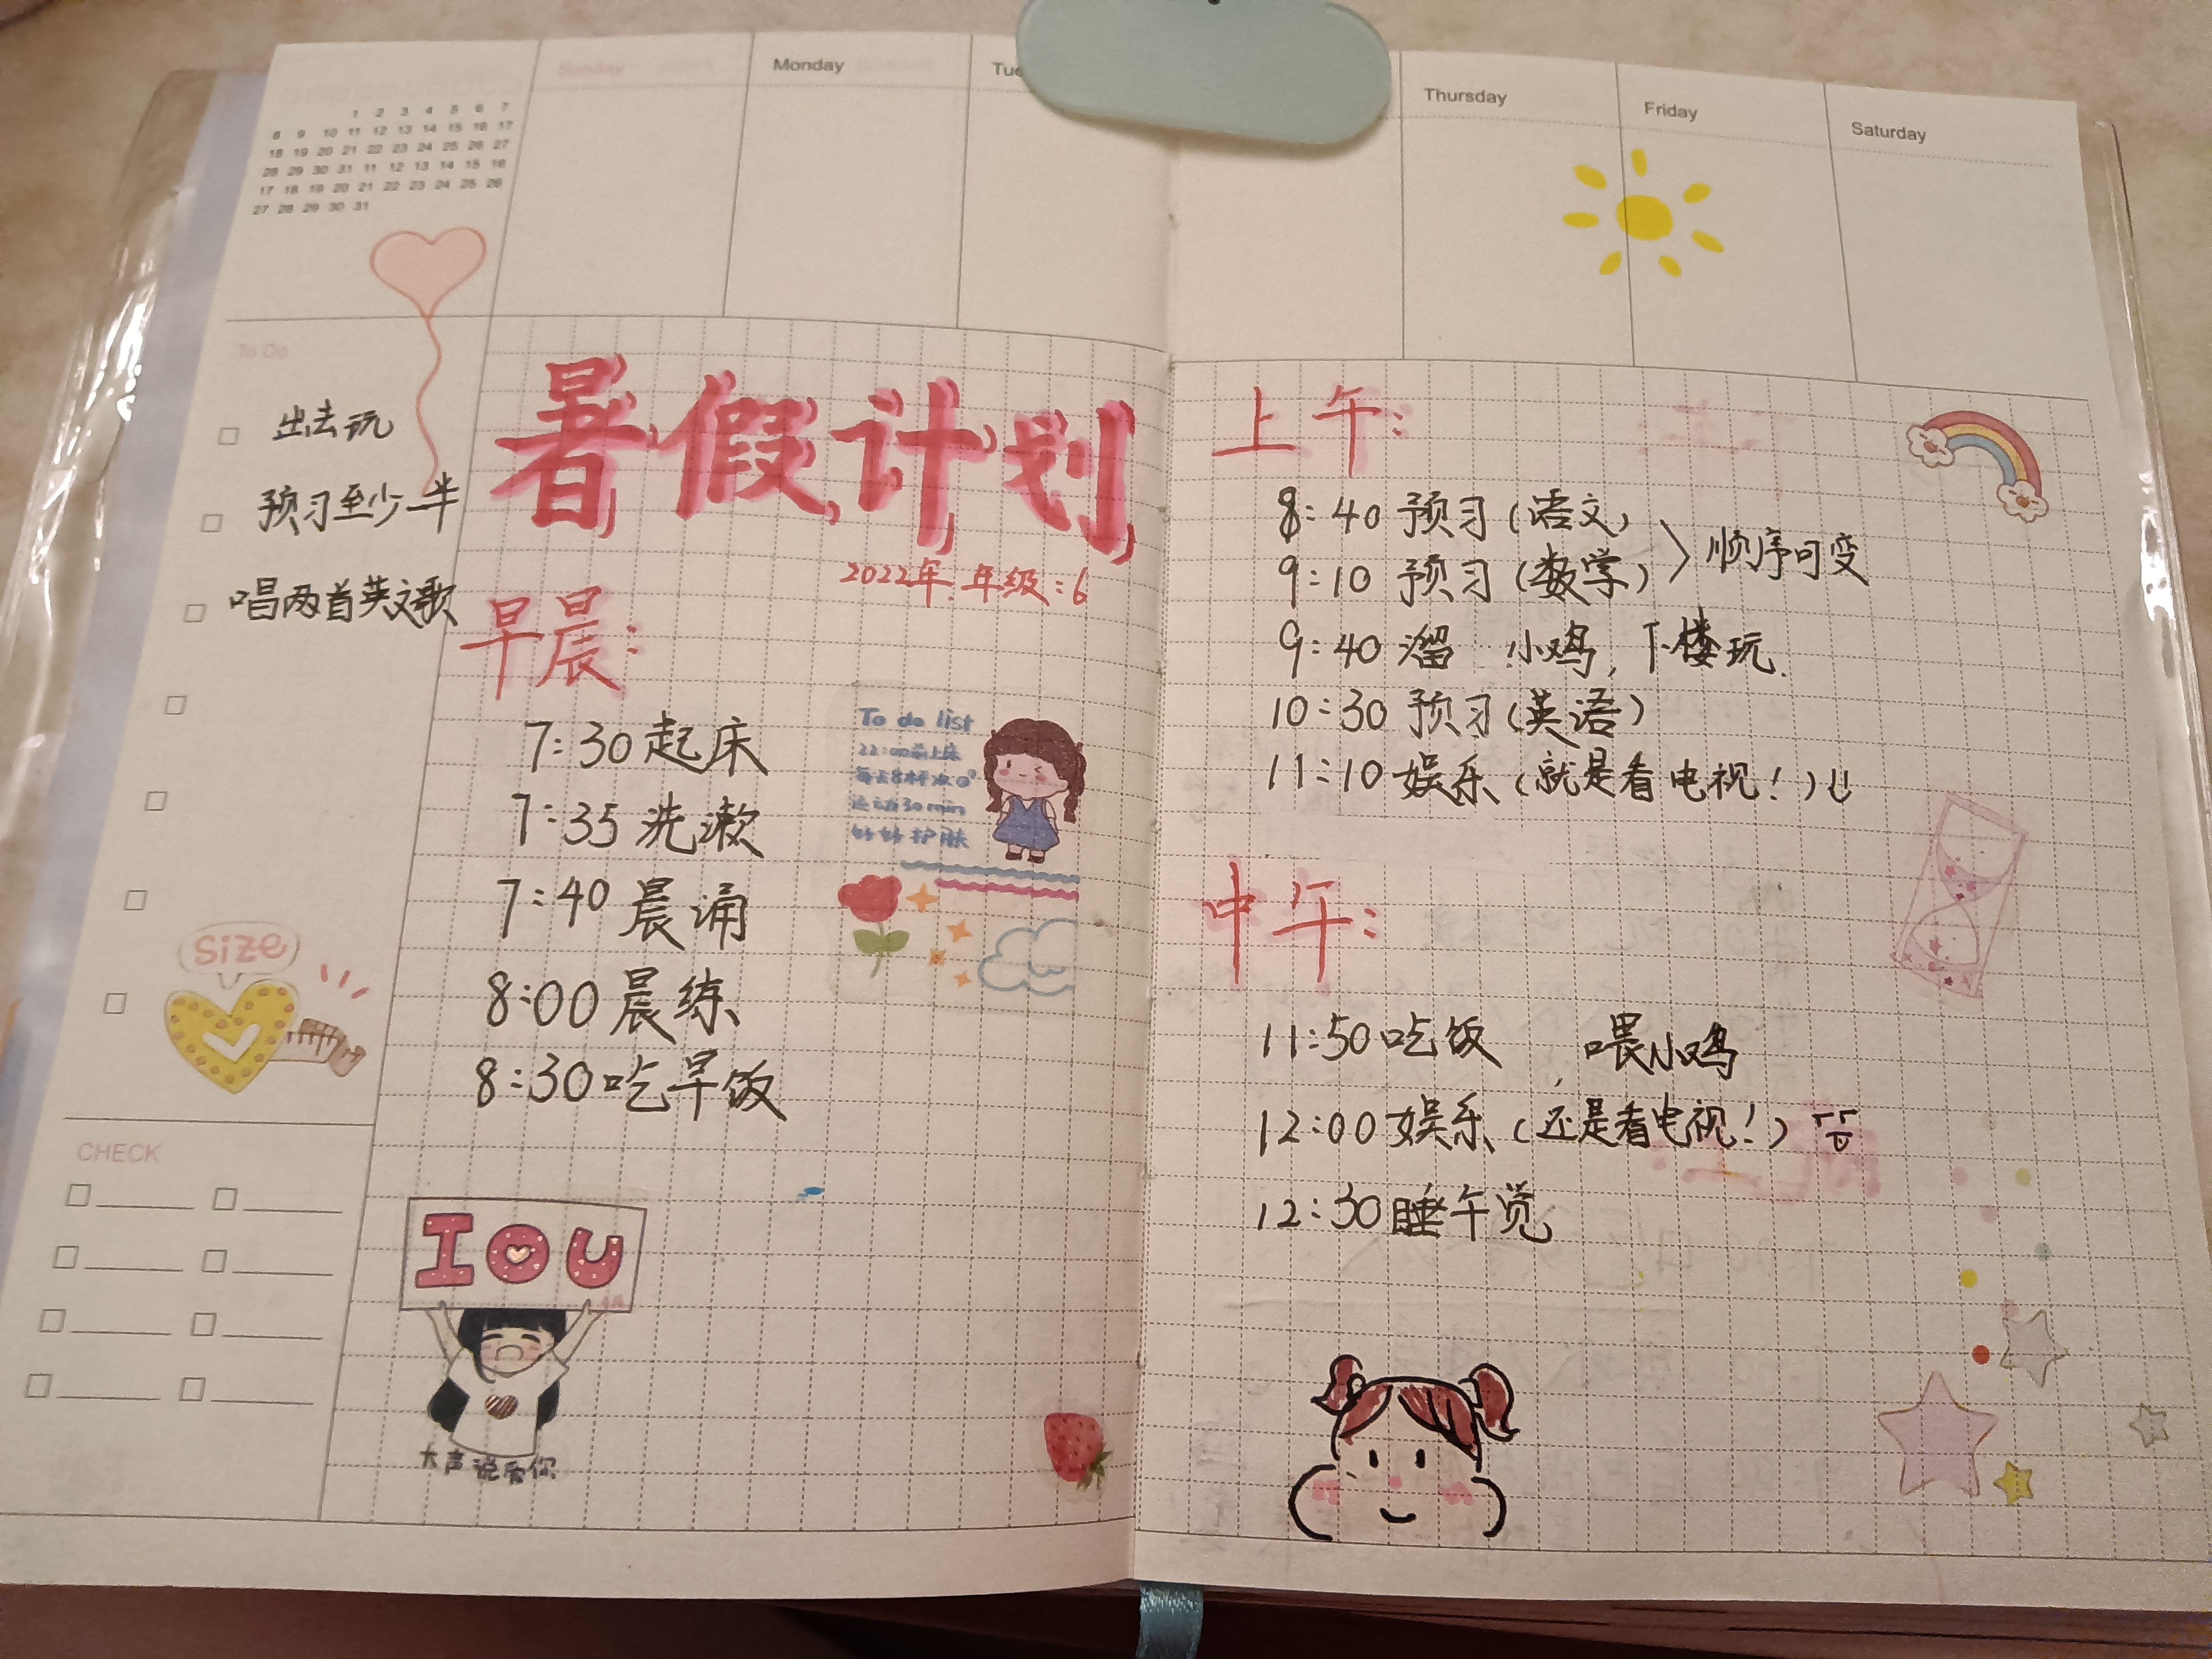 Sunday
Monday
Thursday
Friday
Saturday
1 2 3 4 5 6 7
8 9 10 11 12 13 14 15 16 17
18 19 20 21 22 23 24 25 26 27
28 29 30 31 11 12 13 14 15 16
17 18 19 20 21 22 23 24 25 26
27 28 29 30 31
To Do
出去玩
预习至少一半
唱两首英文歌
size
CHECK
暑假计划
2022年.年级:6
早晨:
7:30起床
7:35洗漱
7:40晨诵
8:00晨练
8:30吃早饭
To do list
22:00前上床
每天8杯水
运动30min
好好护肤
I O U
大声说爱你
上午:
8:40 预习(语文)
9:10 预习(数学)
顺序可变
9:40 溜 小鸡,下楼玩.
10:30 预习(英语)
11:10 娱乐(就是看电视!)
中午:
11:50吃饭,喂小鸡
12:00娱乐(还是看电视!)
12:30睡午觉